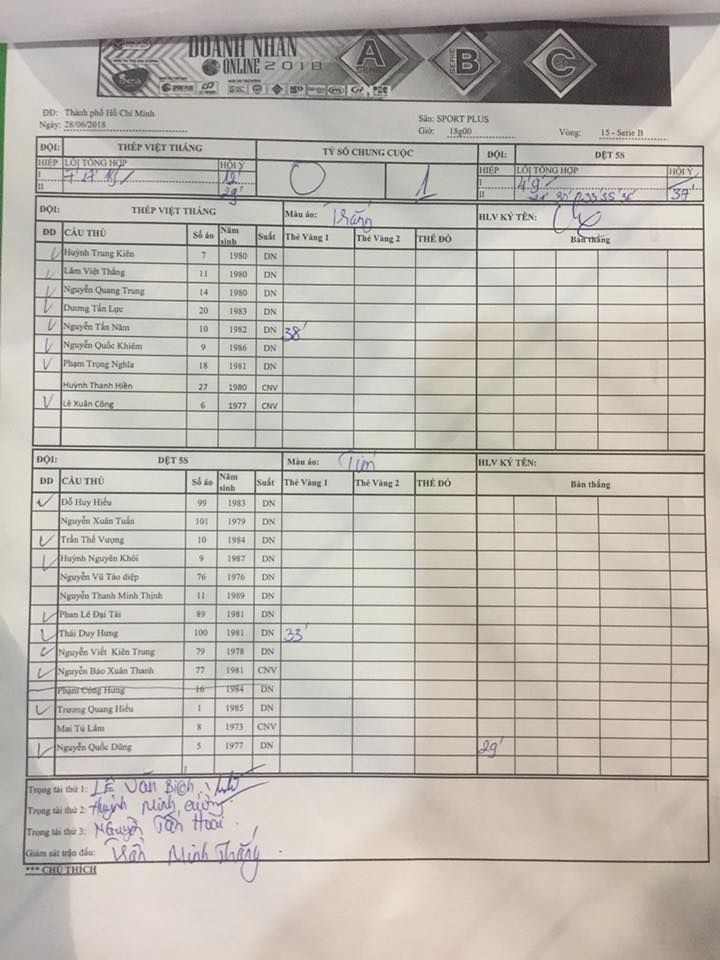 DOANH NHÂN
ONLINE 2018
A SERIE
SERIE B
C
ĐĐ: Thành phố Hồ Chí Minh
Sân: SPORT PLUS
Ngày: 28/06/2018
Giờ: 18g00
Vòng: 15 - Serie B
ĐỘI: THÉP VIỆT THẮNG TỶ SỐ CHUNG CUỘC ĐỘI: DỆT 5S
HIỆP LỖI TỔNG HỢP HỘI Ý 0 1 HIỆP LỖI TỔNG HỢP HỘI Ý
I 7' 17' 12' I 4' 9'
II 29' II 37'
ĐỘI: THÉP VIỆT THẮNG Màu áo: Trắng HLV KÝ TÊN:
DD CẦU THỦ Số áo Năm sinh Suất Thẻ Vàng 1 Thẻ Vàng 2 THẺ ĐỎ Bàn thắng
Huỳnh Trung Kiên 7 1980 DN
Lâm Việt Thắng 11 1980 DN
Nguyễn Quang Trung 14 1980 DN
Dương Tấn Lực 20 1983 DN
Nguyễn Tấn Năm 10 1982 DN 38'
Nguyễn Quốc Khiêm 9 1986 DN
Phạm Trọng Nghĩa 18 1981 DN
Huỳnh Thanh Hiền 27 1980 CNV
Lê Xuân Công 6 1977 CNV
ĐỘI: DỆT 5S Màu áo: Tím HLV KÝ TÊN:
DD CẦU THỦ Số áo Năm sinh Suất Thẻ Vàng 1 Thẻ Vàng 2 THẺ ĐỎ Bàn thắng
Đỗ Huy Hiếu 99 1983 DN
Nguyễn Xuân Tuấn 101 1979 DN
Trần Thế Vượng 10 1984 DN
Huỳnh Nguyên Khôi 9 1987 DN
Nguyễn Vũ Tảo diệp 76 1976 DN
Nguyễn Thanh Minh Thịnh 11 1989 DN
Phan Lê Đại Tài 89 1981 DN
Thái Duy Hưng 100 1981 DN 33'
Nguyễn Viết Kiên Trung 79 1978 DN
Nguyễn Bảo Xuân Thanh 77 1981 CNV
Phạm Công Hưng 16 1984 DN
Trương Quang Hiếu 1 1985 DN
Mai Tú Lâm 8 1973 CNV
Nguyễn Quốc Dũng 5 1977 DN 29'
Trọng tài thứ 1: LÊ VĂN BÍCH
Trọng tài thứ 2: Huỳnh Minh Cường
Trọng tài thứ 3: Nguyễn Tấn Hoài
Giám sát trận đấu: Trần Minh Thắng
*** CHÚ THÍCH